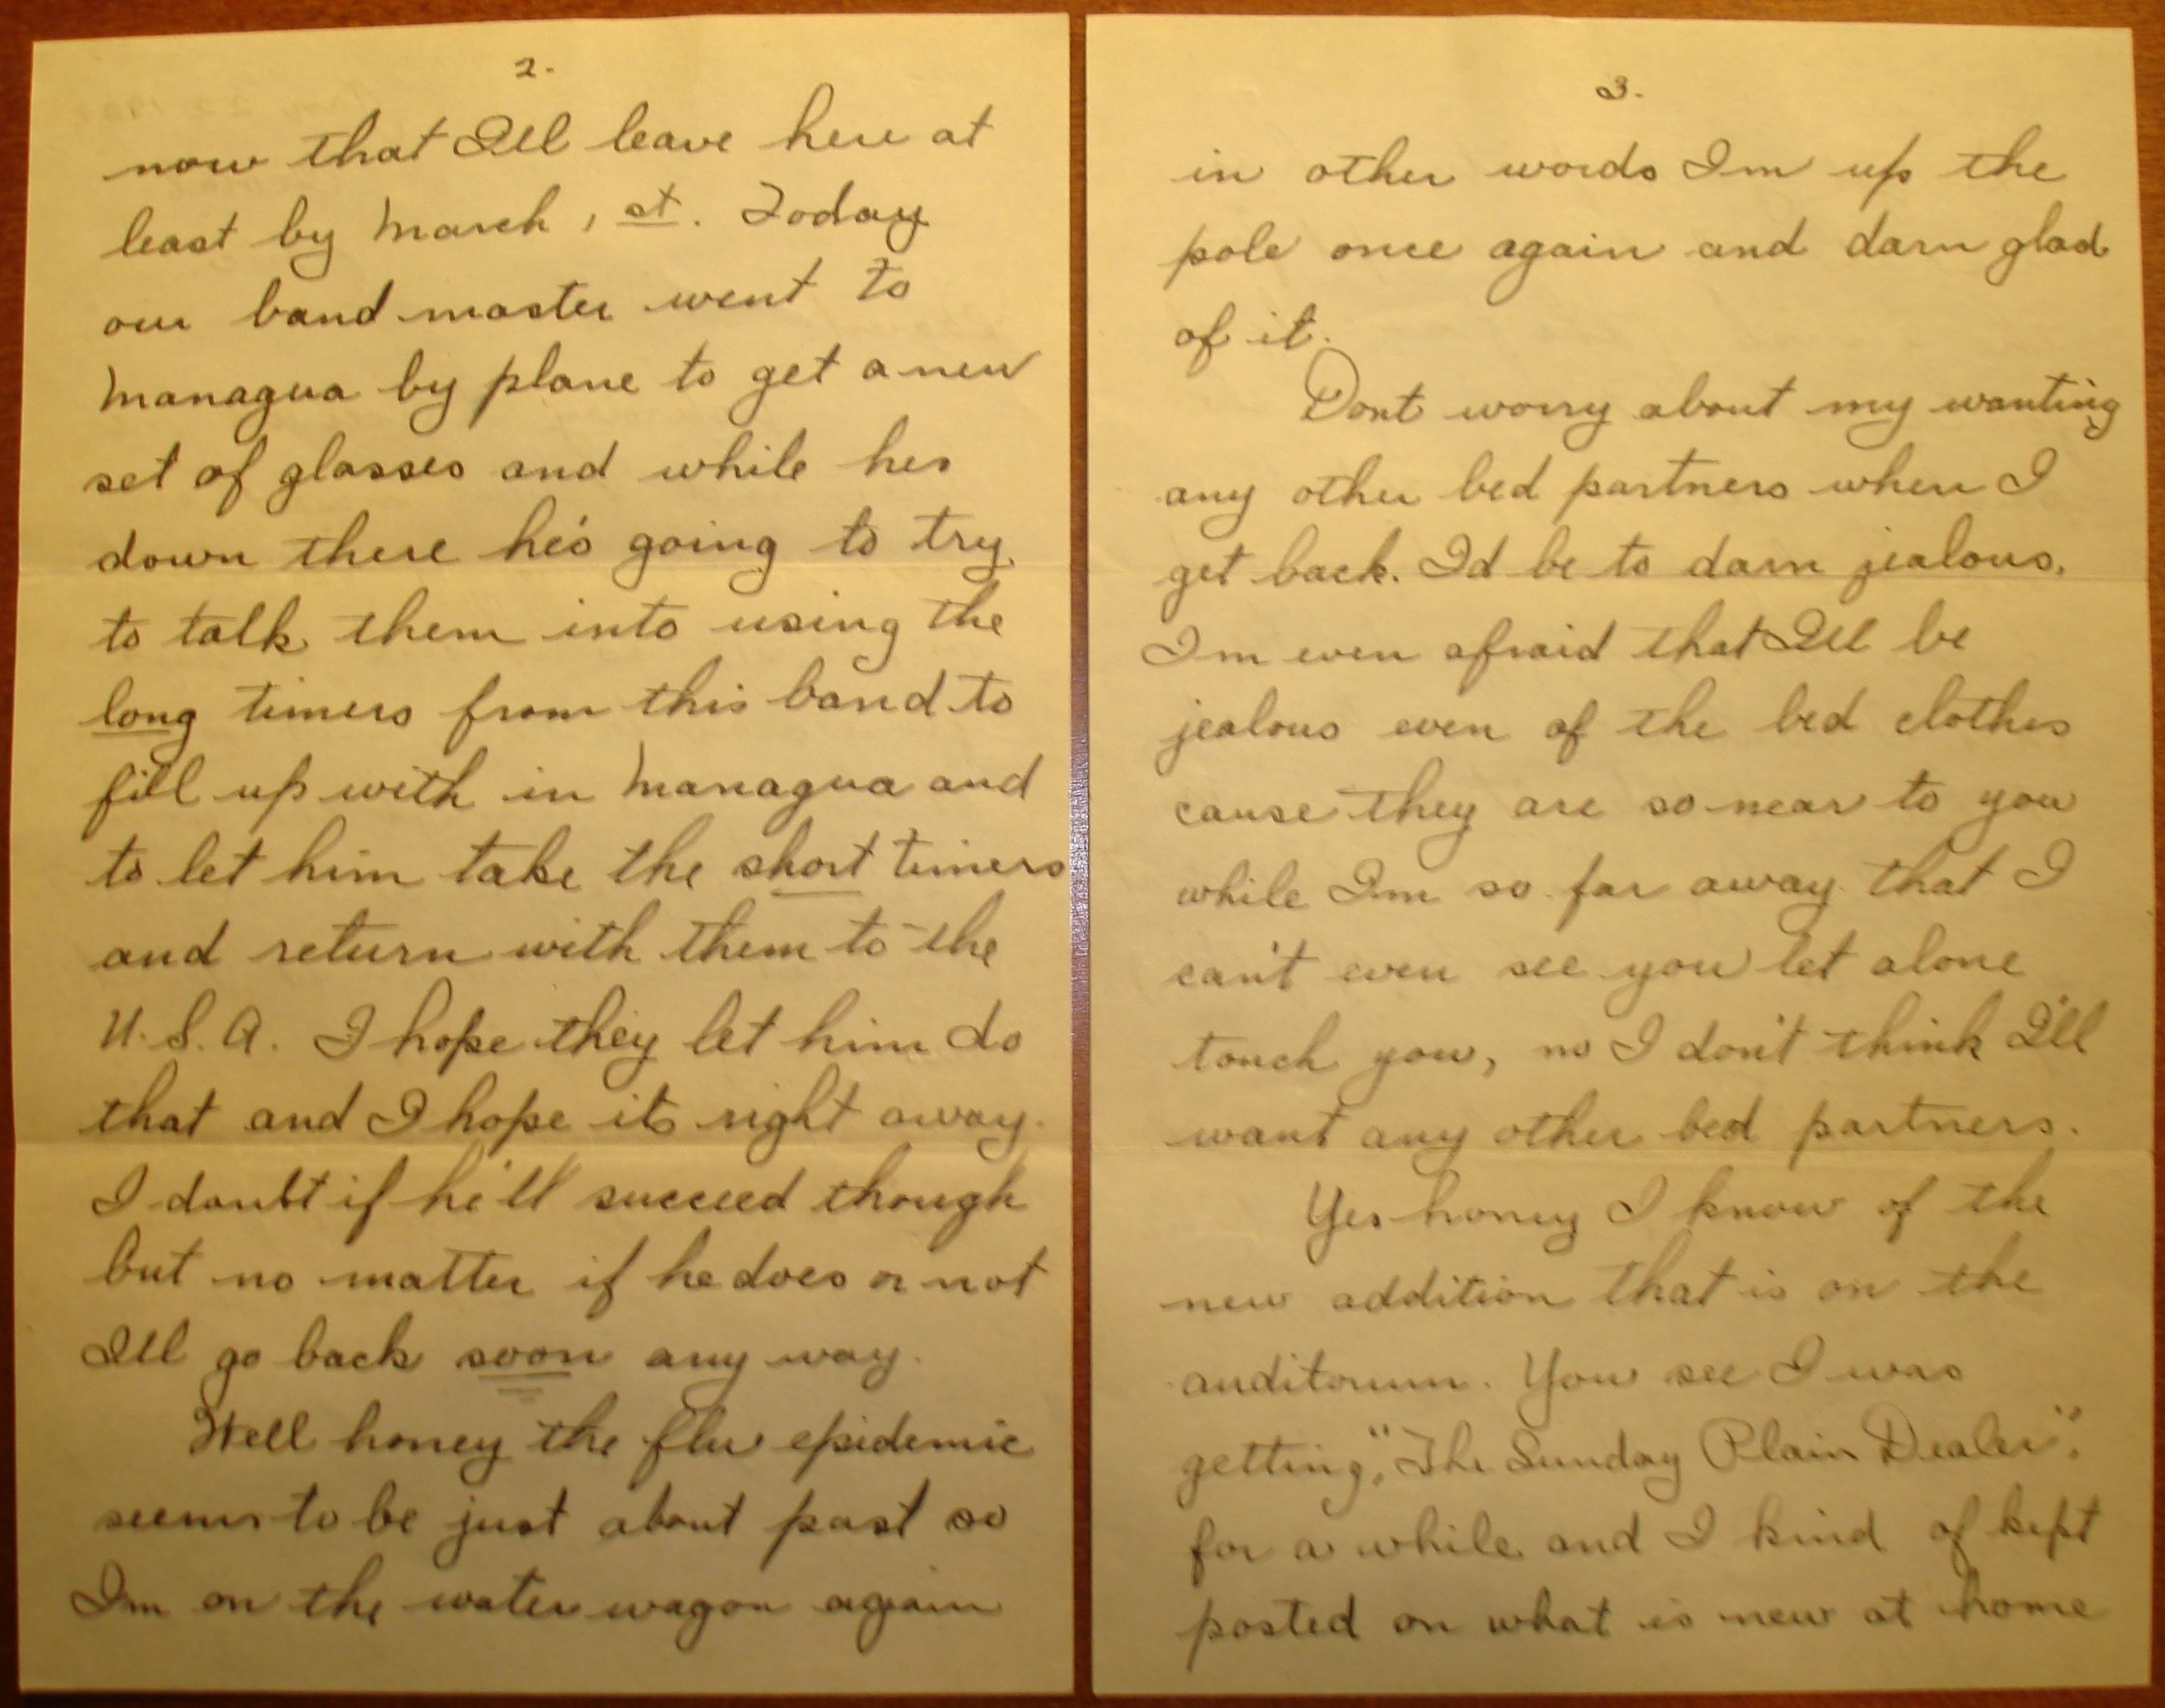 2.
now that I'll leave here at
least by March 1 st. Today
our band master went to
Managua by plane to get a new
set of glasses and while hes
down there he's going to try
to talk them into using the
long timers from this band to
fill up with in Managua and
to let him take the short timers
and return with them to the
U.S.A. I hope they let him do
that and I hope its right away.
I doubt if he'll succeed though
but no matter if he does or not
I'll go back soon any way.
Well honey the flu epidemic
seems to be just about past so
Im on the water wagon again
3.
in other words Im up the
pole once again and darn glad
of it.
Dont worry about my wanting
any other bed partners when I
get back. Id be to darn jealous.
Im even afraid that I'll be
jealous even of the bed clothes
cause they are so near to you
while I'm so far away that I
can't even see you let alone
touch you, no I don't think I'll
want any other bed partners.
Yes honey I know of the
new addition that is on the
auditorum. You see I was
getting, "The Sunday Plain Dealer".
for a while and I kind of kept
posted on what is new at home